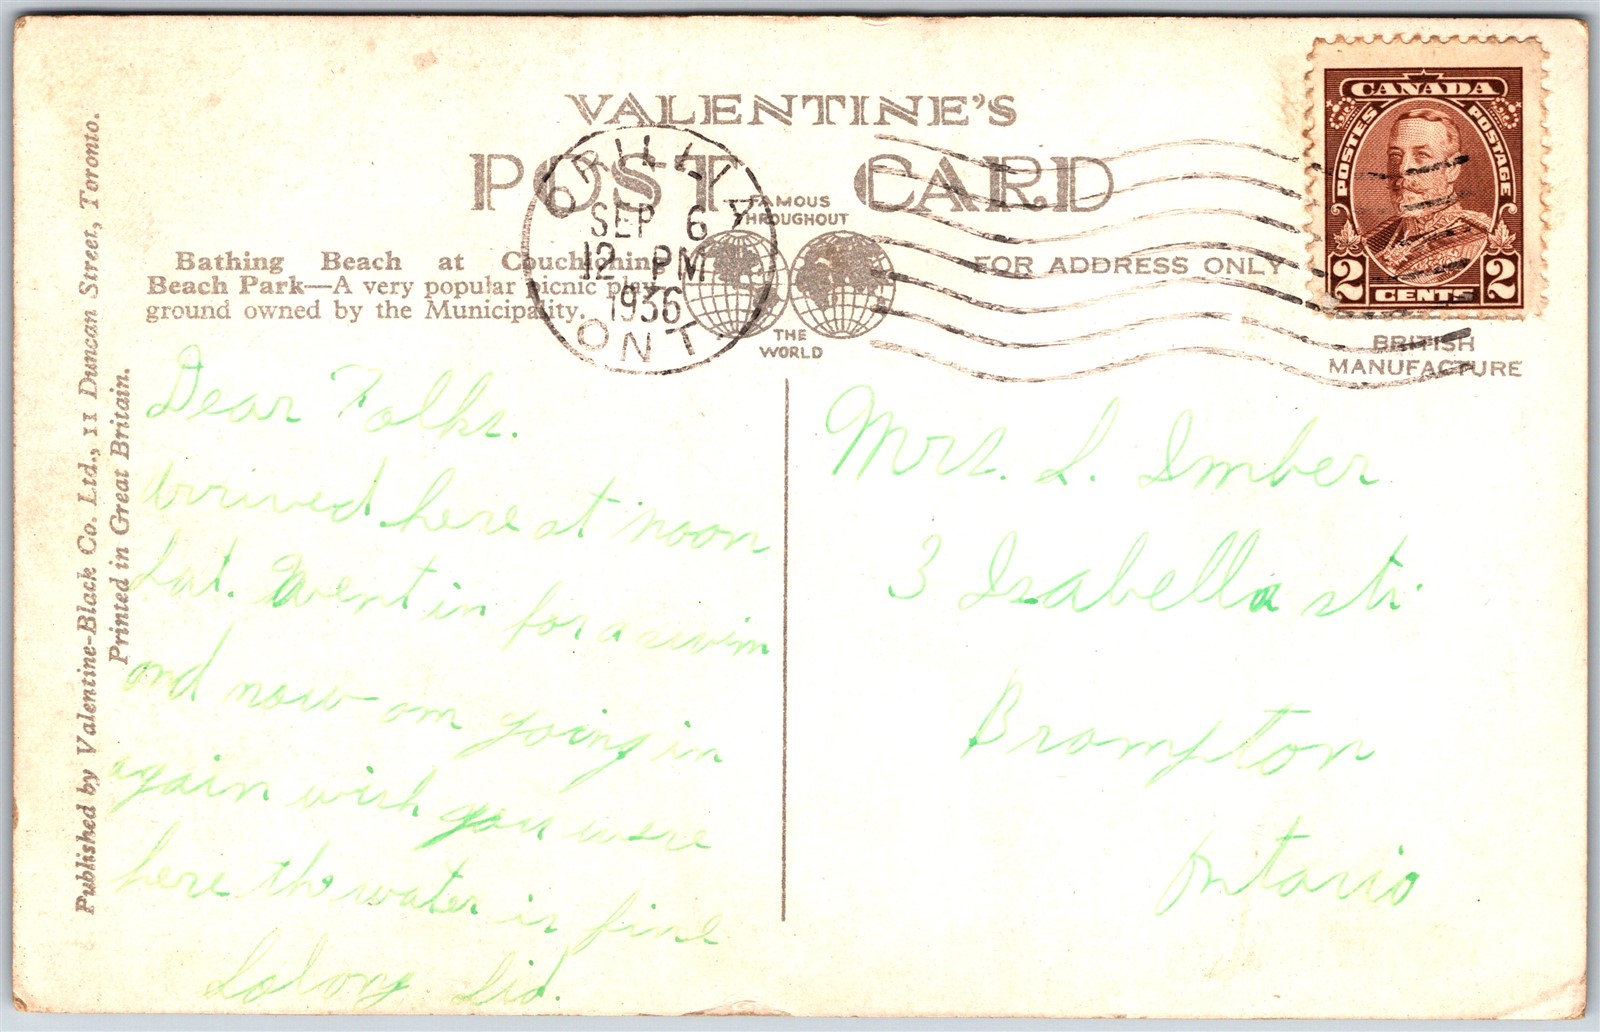 VALENTINE'S
POST CARD
FAMOUS
THROUGHOUT
THE
WORLD
FOR ADDRESS ONLY
BRITISH
MANUFACTURE
CANADA
POSTES POSTAGE
2 CENTS 2
ORILLIA
SEP 6
12 PM
1936
ONT.
Bathing Beach at Couchiching
Beach Park—A very popular picnic play-
ground owned by the Municipality.
Published by Valentine-Black Co. Ltd., 11 Duncan Street, Toronto.
Printed in Great Britain.
Dear Folks.
arrived here at noon
Sat. went in for a swim
and now am going in
again wish you were
here the water is fine
Solong Sid.
Mrs. S. Imber
3 Isabella str.
Brampton
Ontario